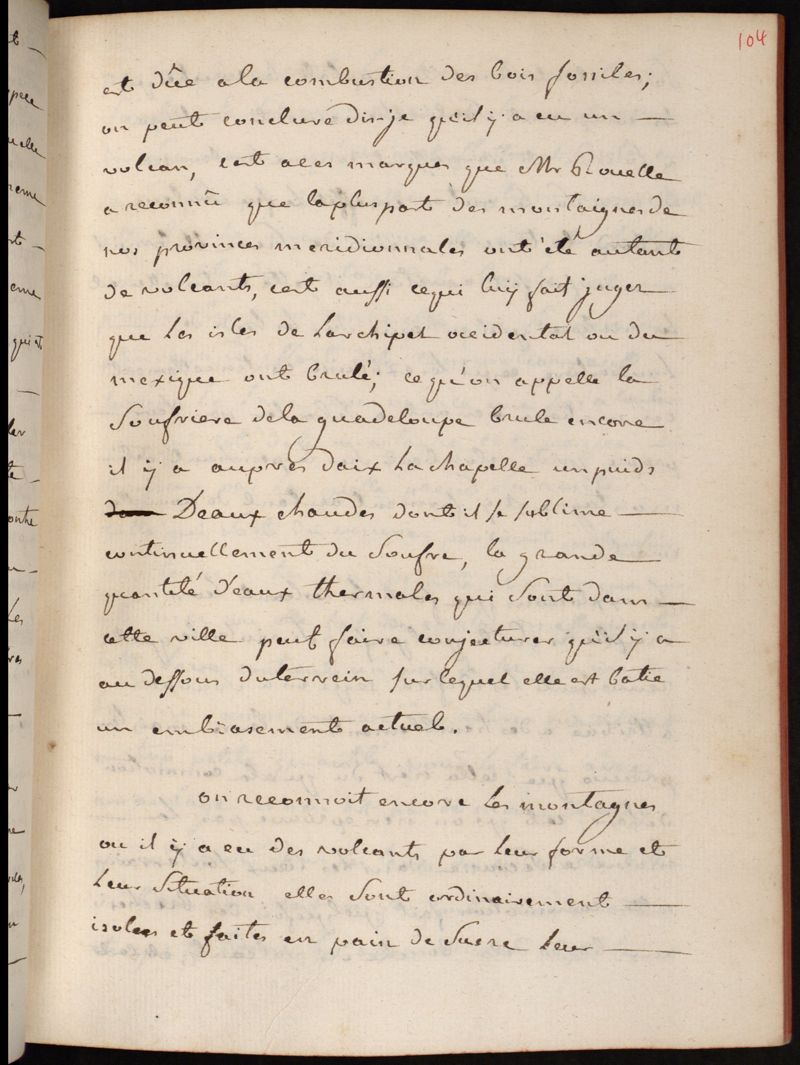 104
est dûe a la combustion des bois fossiles;
on peut conclure dis je qu'il y a eu un —
volcan, c'est a ces marques que Mr Rouelle
a reconnû que la plus part des montaignes de
nos provinces meridionnales ont été autant
de volcants, c'est aussi ce qui luy fait juger
que les isles de Larchipel occidental ou du
mexique ont brulé; ce qu'on appelle la
Soufriere de la guadeloupe brule encore
il y a aupres daix La chapelle un puids
Deaux chaudes dont il se sublime —
continuellement du Soufre, la grande
quantité d'eaux thermales qui Sont dans —
cette ville peut faire conjecturer qu'il y a
au dessous du terrein sur lequel elle est batie
un embrasement actuel.
on reconnoit encore les montagnes
ou il y a eu des volcants par leur forme et
leur Situation elles Sont ordinairement —
isolees et faites en pain de Sucre leur —